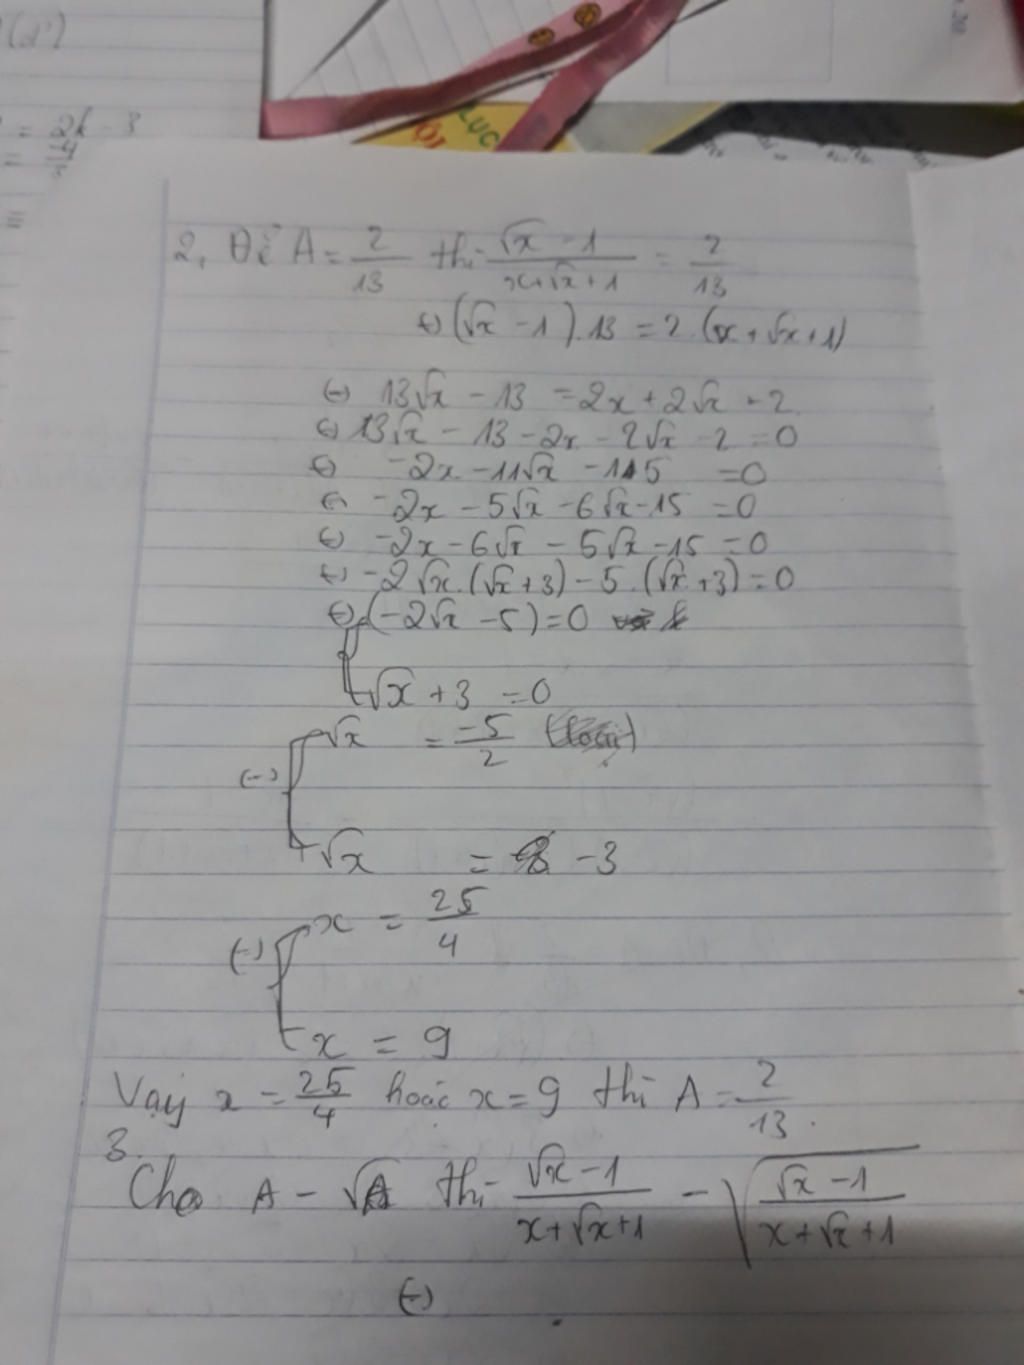 (2')
= 2k - 3
LUC
ỘI
2, Để A = 2/13 thì (√x - 1)/(x+√x+1) = 2/13
(=) (√x - 1).13 = 2.(x+√x+1)
(=) 13√x - 13 = 2x + 2√x + 2
(=) 13√x - 13 - 2x - 2√x - 2 = 0
(=) -2x - 11√x - 15 = 0
(=) -2x - 5√x - 6√x - 15 = 0
(=) -2x - 6√x - 5√x - 15 = 0
(=) -2√x.(√x + 3) - 5.(√x + 3) = 0
(=) [ (-2√x - 5) = 0
√x + 3 = 0
(=) [ √x = -5/2
√x = -3
(=) [ x = 25/4
x = 9
Vậy x = 25/4 hoặc x = 9 thì A = 2/13.
3.
Cho A - √A thì (√x - 1)/(x+√x+1) - √((√x - 1)/(x+√x+1))
(=)